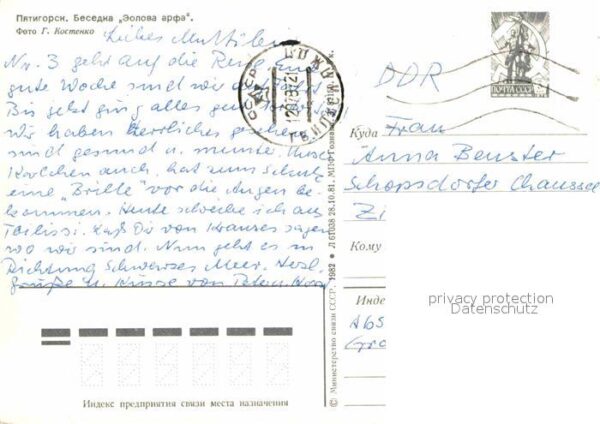 Пятигорск. Беседка „Эолова арфа“.
Фото Г. Костенко
Liebes Muttilein
Nr. 3 geht auf die Reise. Eine
gute Woche sind wir
Bis jetzt ging alles gut
wir haben herrliches gesehen
sind gesund u. munter. Unser
auch, hat zum Schutz
eine „Brille“ vor die Augen be-
kommen. Heute schreibe ich aus
Tbilissi. Laß Dir von Krauses sagen
wo wir sind. Nun geht es in
Richtung Schwarzes Meer. Herzl.
Grüße u. Küsse von Peter u.
СССР
ПОЧТА СССР
DDR
Куда Frau
Anna Benster
Schopsdorfer Chaussee
Zi
Кому
Инде
Abs
Gro
privacy protection
Datenschutz
© Министерство связи СССР. 1982 • Л 61038 28.10.81. МПФ Гознака.
Индекс предприятия связи места назначения